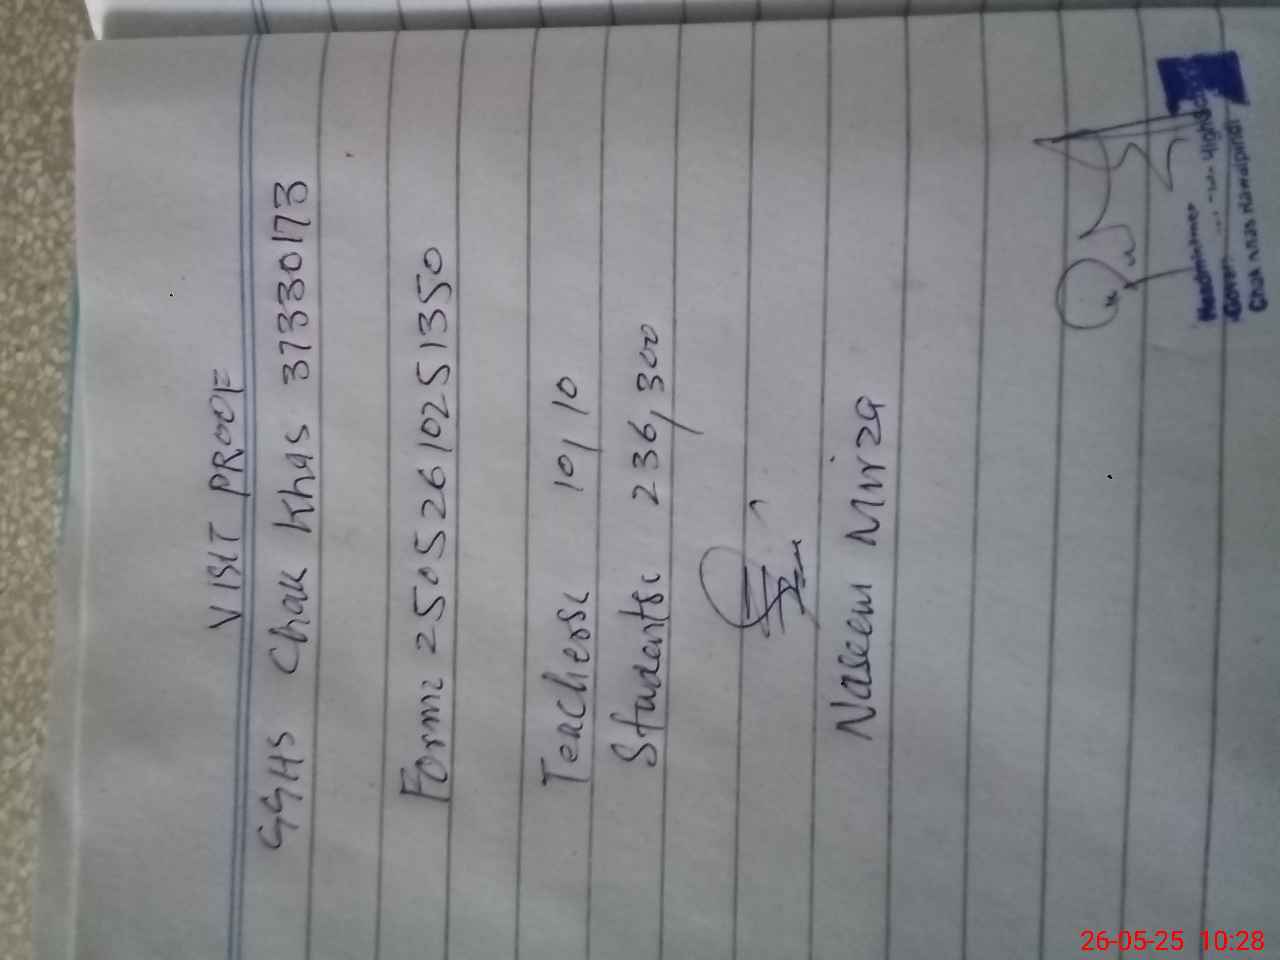 VISIT PROOF
GGHS Chak Khas 37330173
Form: 25052610251350
Teachers: 10/10
Students: 236,300
Naseem Mirza
Headmistress
High
Chak Khas Rawalpindi
26-05-25 10:28